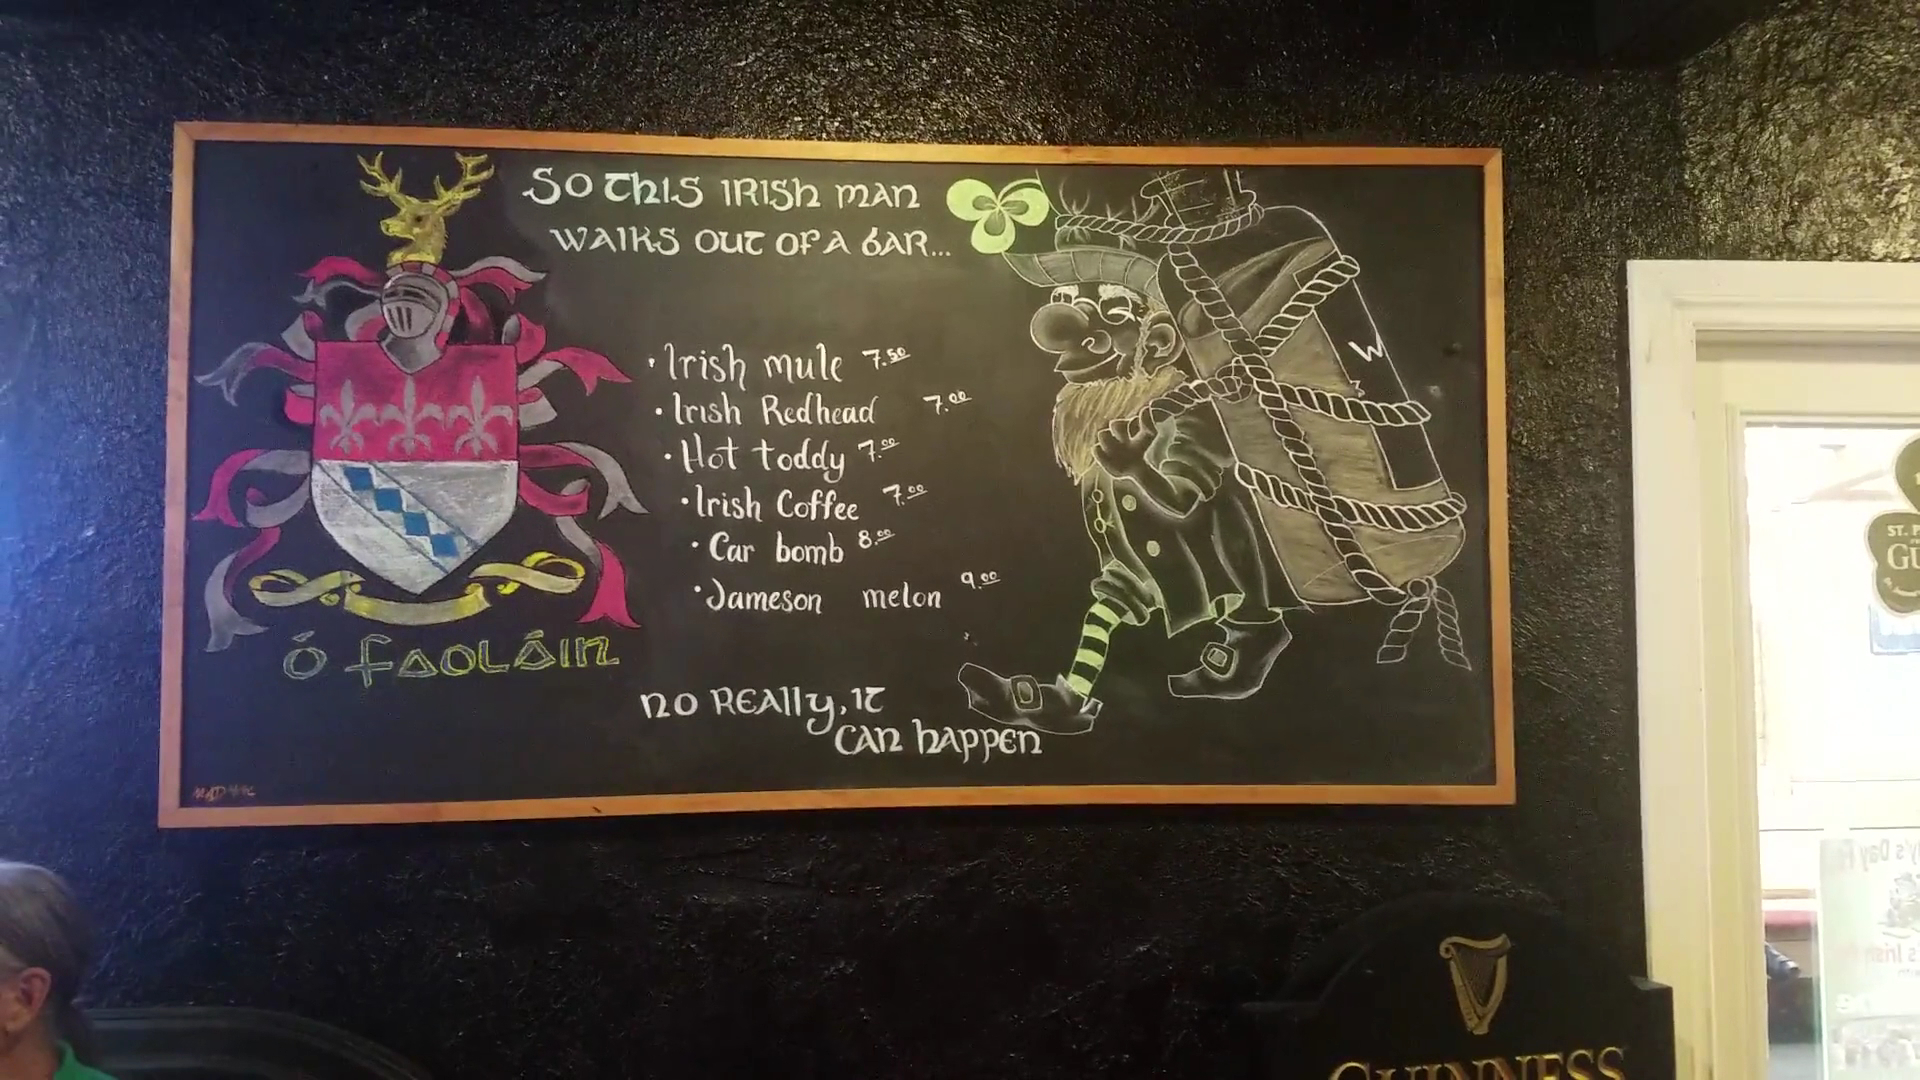 So this Irish man
walks out of a bar...
• Irish mule 7.50
• Irish Redhead 7.00
• Hot toddy 7.00
• Irish Coffee 7.00
• Car bomb 8.00
• Jameson melon 9.00
Ó Faoláin
No Really, it
can happen
W
ST. P
GU
y's Day
s Iris
GUINNESS